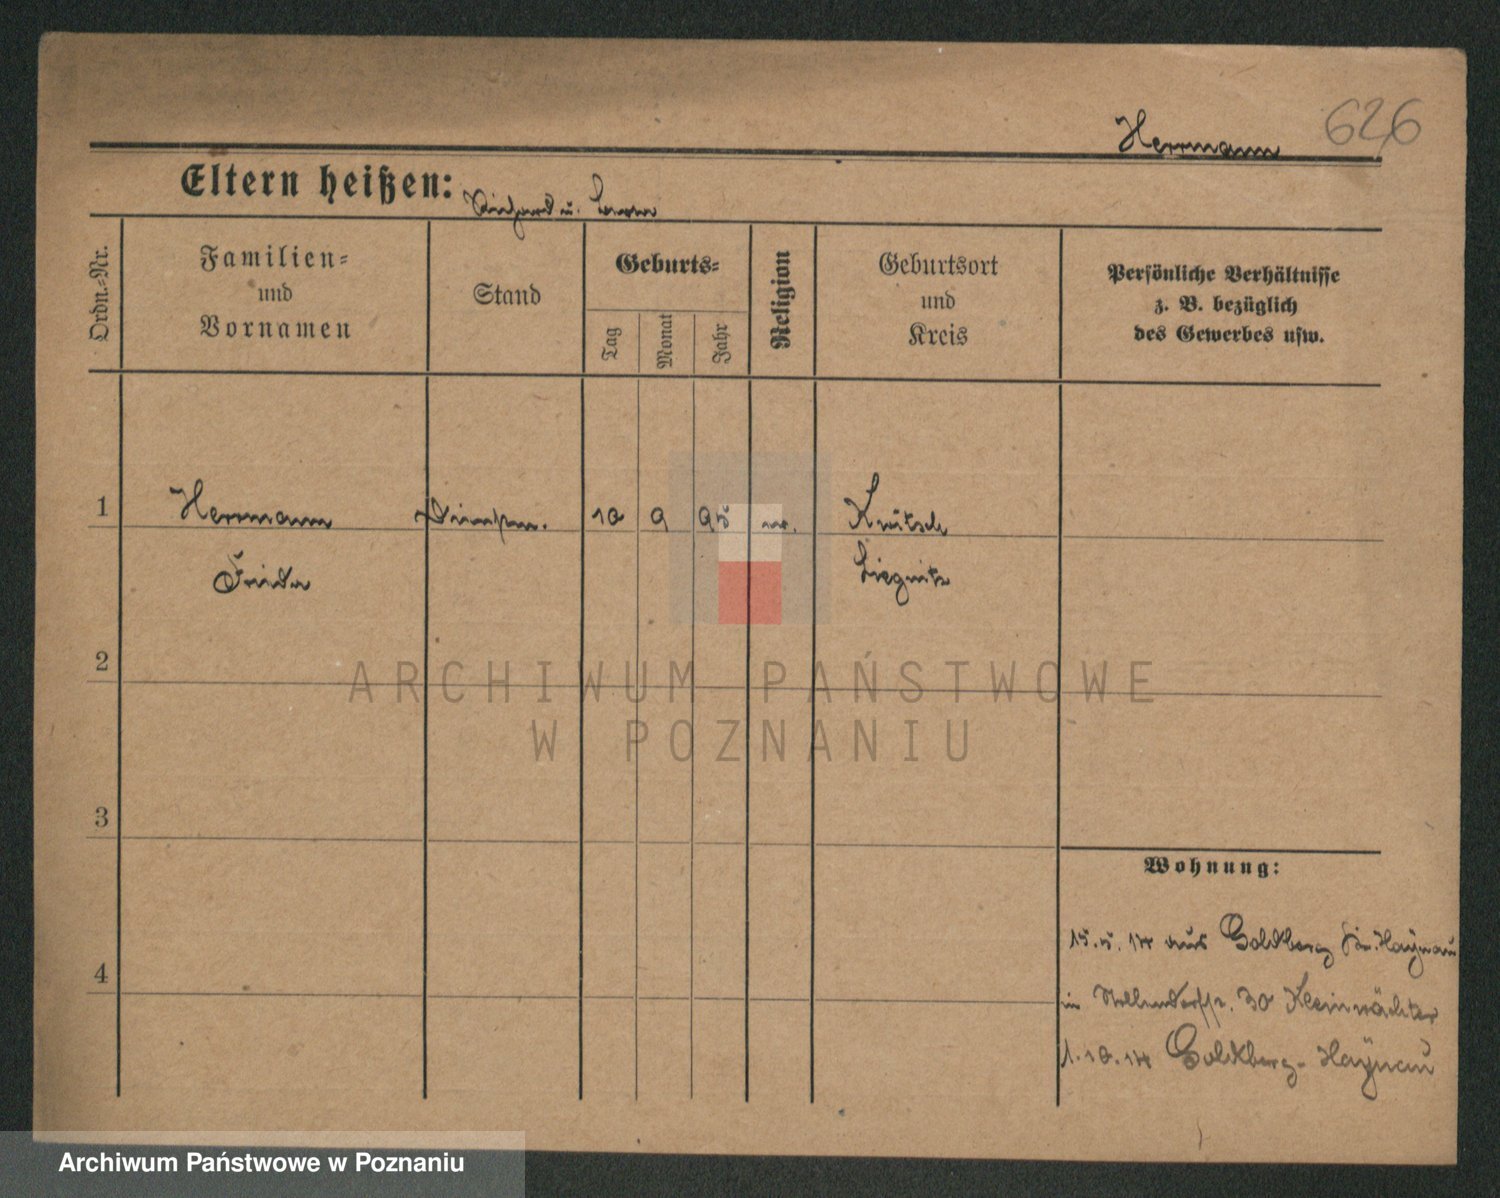 Herrmann 626
Eltern heißen: Richard u.
Ordn.-Nr.
Familien-
und
Vornamen
Stand
Geburts-
Tag
Monat
Jahr
Religion
Geburtsort
und
Kreis
Persönliche Verhältnisse
z. B. bezüglich
des Gewerbes usw.
1 Herrmann 10 9 95 Knitsch
Frieda Liegnitz
2
3
4
ARCHIWUM PAŃSTWOWE
W POZNANIU
Wohnung:
15.5.14 aus Goldberg Haynau
in Nollendorfstr. 30 Kleinwächter
1.10.14 Goldberg-Haynau
Archiwum Państwowe w Poznaniu